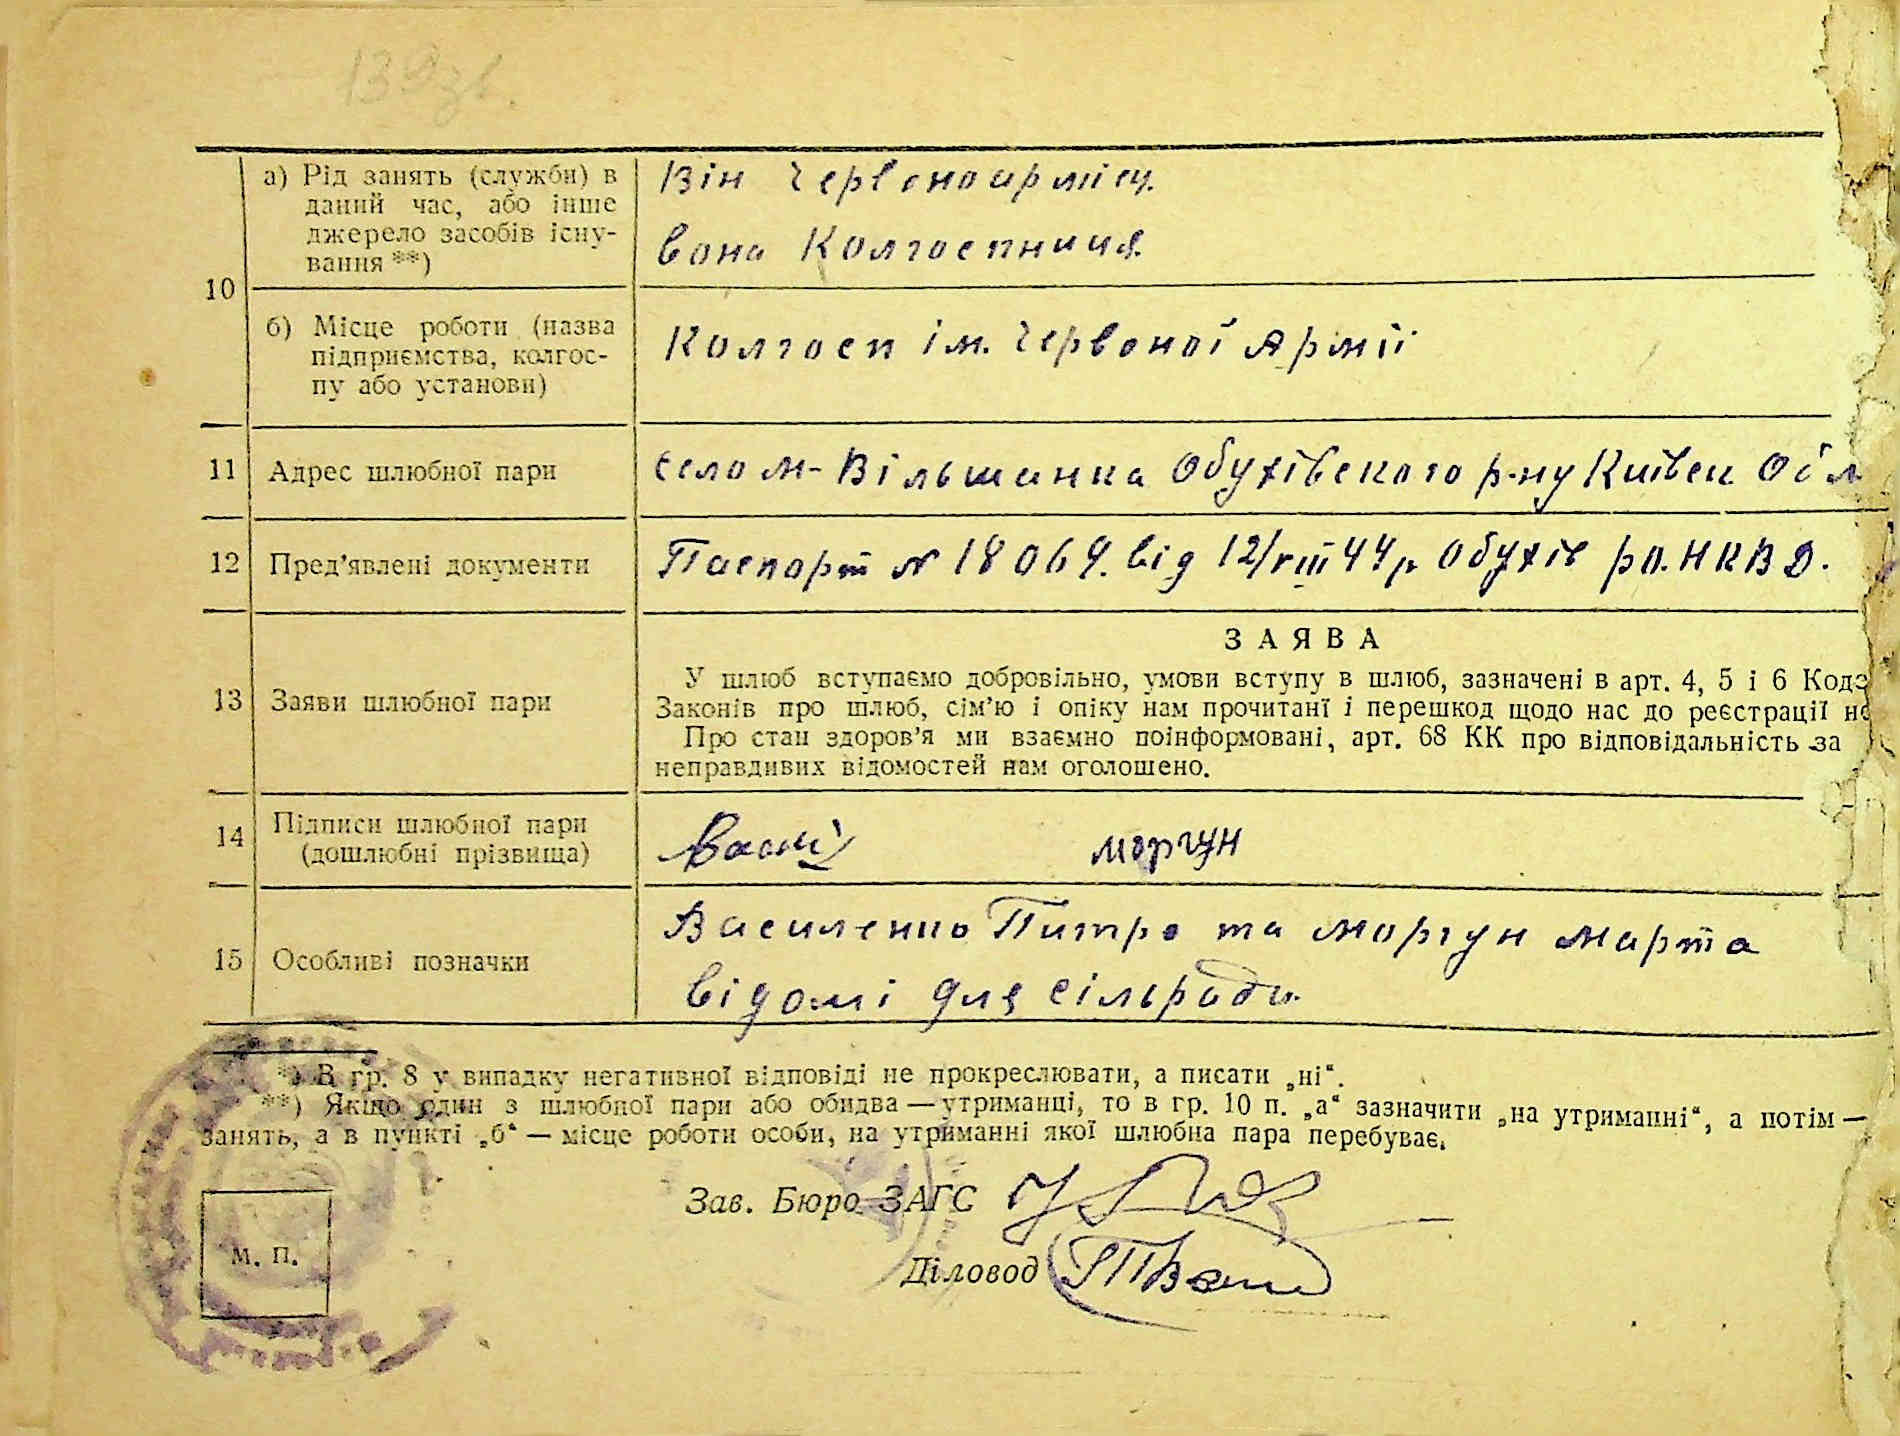 139зв.
а) Рід занять (служби) в
даний час, або інше
джерело засобів існу-
вання **)
Він Червоноармієц.
Вона Колгоспниця.
10
б) Місце роботи (назва
підприємства, колгос-
пу або установи)
Колгосп ім. Червоної Армії
11
Адрес шлюбної пари
село М-Вільшанка Обухівского р-ну Київск Обл
12
Пред'явлені документи
Паспорт № 18069. від 12/VIII 44 р Обухів ро. НКВД.
13
Заяви шлюбної пари
ЗАЯВА
У шлюб вступаємо добровільно, умови вступу в шлюб, зазначені в арт. 4, 5 і 6 Коде
Законів про шлюб, сім'ю і опіку нам прочитані і перешкод щодо нас до реєстрації не
Про стан здоров'я ми взаємно поінформовані, арт. 68 КК про відповідальність за
неправдивих відомостей нам оголошено.
14
Підписи шлюбної пари
(дошлюбні прізвища)
Васи
Моргун
15
Особливі позначки
Василенко Питро та Моргун Марта
відомі для сільради.
*) В гр. 8 у випадку негативної відповіді не прокреслювати, а писати „ні“.
**) Якщо один з шлюбної пари або обидва — утриманці, то в гр. 10 п. „а“ зазначити „на утриманні“, а потім —
занять, а в пункті „б“ — місце роботи особи, на утриманні якої шлюбна пара перебуває.
Зав. Бюро ЗАГС
Діловод
М. П.